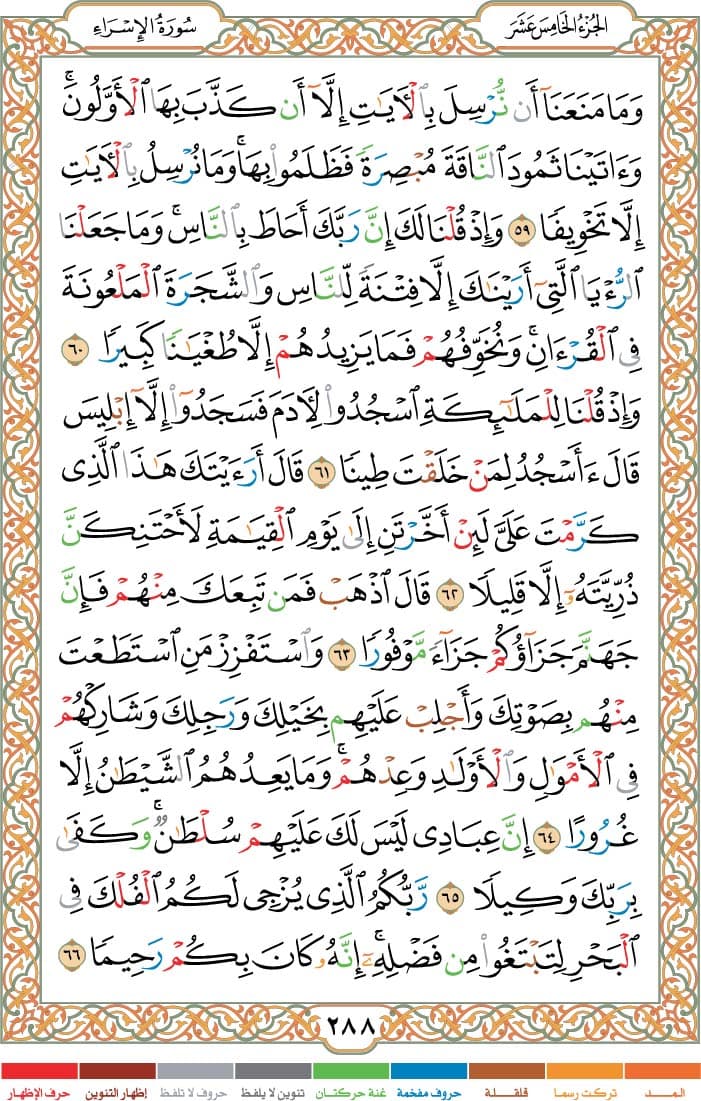 الجزء الخامس عشر
سورة الإسراء
وَمَا مَنَعَنَآ أَن نُّرْسِلَ بِٱلْـَٔايَـٰتِ إِلَّآ أَن كَذَّبَ بِهَا ٱلْأَوَّلُونَ ۚ
وَءَاتَيْنَا ثَمُودَ ٱلنَّاقَةَ مُبْصِرَةً فَظَلَمُوا۟ بِهَا ۚ وَمَا نُرْسِلُ بِٱلْـَٔايَـٰتِ
إِلَّا تَخْوِيفًا ٥٩ وَإِذْ قُلْنَا لَكَ إِنَّ رَبَّكَ أَحَاطَ بِٱلنَّاسِ ۚ وَمَا جَعَلْنَا
ٱلرُّءْيَا ٱلَّتِىٓ أَرَيْنَـٰكَ إِلَّا فِتْنَةً لِّلنَّاسِ وَٱلشَّجَرَةَ ٱلْمَلْعُونَةَ
فِى ٱلْقُرْءَانِ ۚ وَنُخَوِّفُهُمْ فَمَا يَزِيدُهُمْ إِلَّا طُغْيَـٰنًا كَبِيرًا ٦٠
وَإِذْ قُلْنَا لِلْمَلَـٰٓئِكَةِ ٱسْجُدُوا۟ لِـَٔادَمَ فَسَجَدُوٓا۟ إِلَّآ إِبْلِيسَ
قَالَ ءَأَسْجُدُ لِمَنْ خَلَقْتَ طِينًا ٦١ قَالَ أَرَءَيْتَكَ هَـٰذَا ٱلَّذِى
كَرَّمْتَ عَلَىَّ لَئِنْ أَخَّرْتَنِ إِلَىٰ يَوْمِ ٱلْقِيَـٰمَةِ لَأَحْتَنِكَنَّ
ذُرِّيَّتَهُۥٓ إِلَّا قَلِيلًا ٦٢ قَالَ ٱذْهَبْ فَمَن تَبِعَكَ مِنْهُمْ فَإِنَّ
جَهَنَّمَ جَزَآؤُكُمْ جَزَآءً مَّوْفُورًا ٦٣ وَٱسْتَفْزِزْ مَنِ ٱسْتَطَعْتَ
مِنْهُم بِصَوْتِكَ وَأَجْلِبْ عَلَيْهِم بِخَيْلِكَ وَرَجِلِكَ وَشَارِكْهُمْ
فِى ٱلْأَمْوَٰلِ وَٱلْأَوْلَـٰدِ وَعِدْهُمْ ۚ وَمَا يَعِدُهُمُ ٱلشَّيْطَـٰنُ إِلَّا
غُرُورًا ٦٤ إِنَّ عِبَادِى لَيْسَ لَكَ عَلَيْهِمْ سُلْطَـٰنٌ ۚ وَكَفَىٰ
بِرَبِّكَ وَكِيلًا ٦٥ رَّبُّكُمُ ٱلَّذِى يُزْجِى لَكُمُ ٱلْفُلْكَ فِى
ٱلْبَحْرِ لِتَبْتَغُوا۟ مِن فَضْلِهِۦٓ ۚ إِنَّهُۥ كَانَ بِكُمْ رَحِيمًا ٦٦
٢٨٨
المـــد تركت رسما قلقلة حروف مفخمة غنة حركتان تنوين لا يلفظ حروف لا تلفظ إظهار التنوين حرف الإظهار